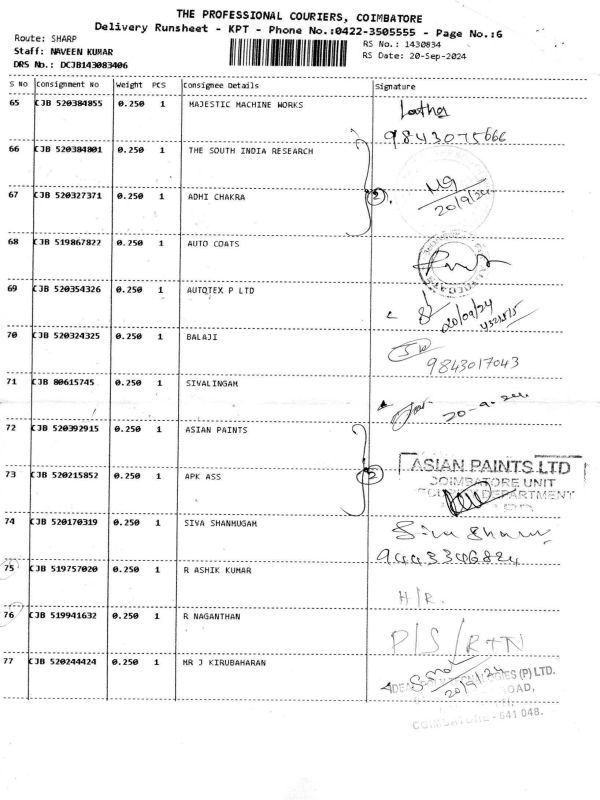 THE PROFESSIONAL COURIERS, COIMBATORE
Delivery Runsheet - KPT - Phone No.:0422-3505555 - Page No.:6
Route: SHARP
RS No.: 1430834
Staff: NAVEEN KUMAR
RS Date: 20-Sep-2024
DRS No.: DCJB143083406
S No Consignment No Weight PCS Consignee Details Signature
65 CJB 520384855 0.250 1 MAJESTIC MACHINE WORKS Latha
9843075666
66 CJB 520384801 0.250 1 THE SOUTH INDIA RESEARCH
67 CJB 520327371 0.250 1 ADHI CHAKRA 2
20/9/24
68 CJB 519867822 0.250 1 AUTO COATS
69 CJB 520354326 0.250 1 AUTOTEX P LTD
20/09/24
70 CJB 520324325 0.250 1 BALAJI
9843017043
71 CJB 80615745 0.250 1 SIVALINGAM
20-9-24
72 CJB 520392915 0.250 1 ASIAN PAINTS
73 CJB 520215852 0.250 1 APK ASS 2
ASIAN PAINTS LTD
COIMBATORE UNIT
DEPARTMENT
74 CJB 520170319 0.250 1 SIVA SHANMUGAM Siva
9443346824
75 CJB 519757020 0.250 1 R ASHIK KUMAR
H/R.
76 CJB 519941632 0.250 1 R NAGANTHAN
P/S/RTN
77 CJB 520244424 0.250 1 MR J KIRUBAHARAN
(P) LTD.
20/9/24
ROAD,
COIMBATORE - 641 048.